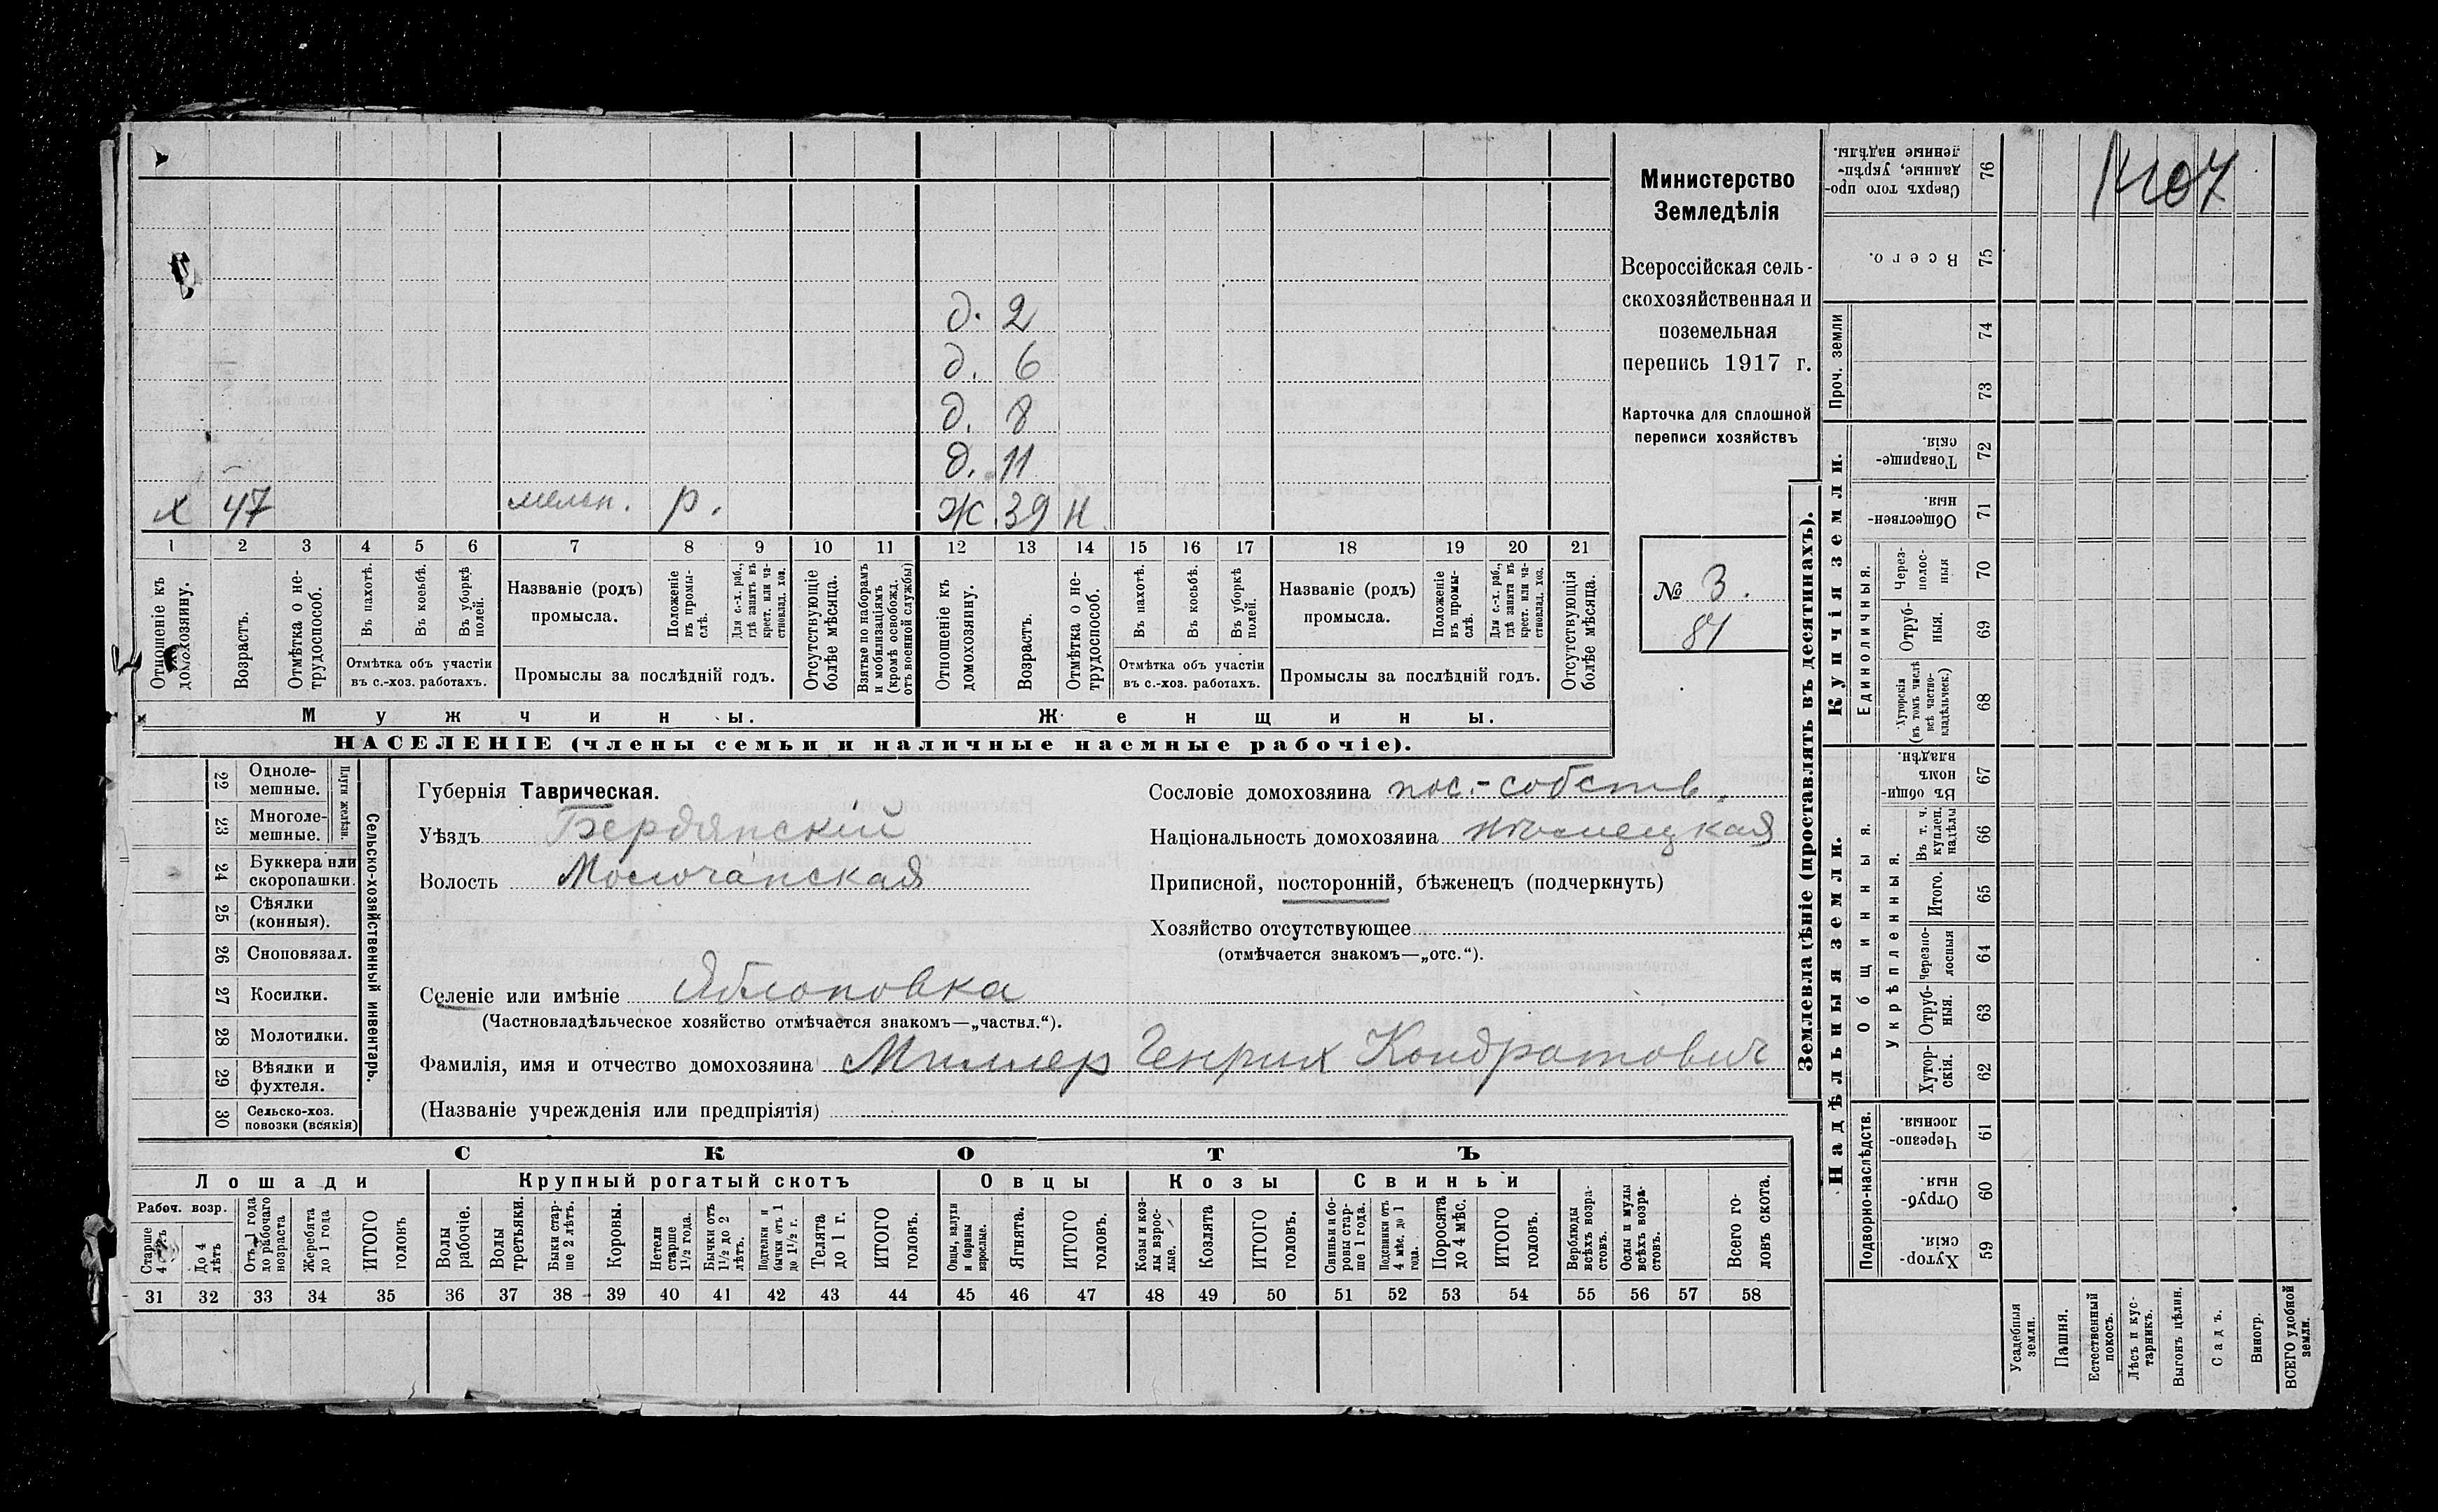 д. 2
д. 6
д. 8
д. 11
х 47 мельн. р. Ж. 39 н.
1 2 3 4 5 6 7 8 9 10 11 12 13 14 15 16 17 18 19 20 21
Отношеніе къ домохозяину.
Возрастъ.
Отмѣтка о нетрудоспособ.
Въ пахотѣ.
Въ косьбѣ.
Въ уборкѣ полей.
Отмѣтка объ участіи
въ с.-хоз. работахъ.
Названіе (родъ)
промысла.
Положеніе въ промы-
слѣ.
Для с.-х. раб.,
гдѣ занятъ въ
крест. или ча-
стновлад. хоз.
Промыслы за послѣдній годъ.
Отсутствующіе
болѣе мѣсяца.
Взятые по наборамъ
и мобилизаціямъ
(кромѣ освобожд.
отъ военной службы)
Отношеніе къ
домохозяину.
Возрастъ.
Отмѣтка о не-
трудоспособ.
Въ пахотѣ.
Въ косьбѣ.
Въ уборкѣ
полей.
Отмѣтка объ участіи
въ с.-хоз. работахъ.
Названіе (родъ)
промысла.
Положеніе
въ промы-
слѣ.
Для с.-х. раб.,
гдѣ занятъ въ
крест. или ча-
стновлад. хоз.
Промыслы за послѣдній годъ.
Отсутствующія
болѣе мѣсяца.
Мужчины.
Женщины.
НАСЕЛЕНІЕ (члены семьи и наличные наемные рабочіе).
Министерство
Земледѣлія
Всероссійская сель-
скохозяйственная и
поземельная
перепись 1917 г.
Карточка для сплошной
переписи хозяйствъ
№ 3.
81
22 Одноле-
мешные.
23 Многоле-
мешные.
Плуги желѣзн.
24 Буккера или
скоропашки.
25 Сѣялки
(конныя).
26 Сноповязал.
27 Косилки.
28 Молотилки.
29 Вѣялки и
фухтеля.
30 Сельско-хоз.
повозки (всякія)
Сельско-хозяйственный инвентарь.
Губернія Таврическая.
Уѣздъ Бердянскій
Волость Молочанская
Селеніе или имѣніе Яблоновка
(Частновладѣльческое хозяйство отмѣчается знакомъ—„частвл.“).
Фамилія, имя и отчество домохозяина Миллер Генрих Кондратович
(Названіе учрежденія или предпріятія)
Сословіе домохозяина пос.-собств.
Національность домохозяина нѣмецкая
Приписной, посторонній, бѣженецъ (подчеркнуть)
Хозяйство отсутствующее
(отмѣчается знакомъ—„отс.“).
СКОТЪ
Лошади
Рабоч. возр.
Старше
4 лѣтъ
До 4
лѣтъ
Отъ 1 года
до рабочаго
возраста
Жеребята
до 1 года
ИТОГО
головъ
Крупный рогатый скотъ
Волы
рабочіе.
Волы
третьяки.
Быки стар-
ше 2 лѣтъ.
Коровы.
Нетели
старше
1½ года.
Бычки отъ
1½ до 2
лѣтъ.
Подтелки и
бычки отъ 1
до 1½ г.
Телята
до 1 г.
ИТОГО
головъ.
Овцы
Овцы, валухи
и бараны
взрослые.
Ягнята.
ИТОГО
головъ.
Козы
Козы и коз-
лы взрос-
лые.
Козлята
ИТОГО
головъ.
Свиньи
Свиньи и бо-
ровы стар-
ше 1 года.
Подсвинки отъ
4 мѣс. до 1
года.
Поросята
до 4 мѣс.
ИТОГО
головъ.
Верблюды
всѣхъ возра-
стовъ.
Ослы и мулы
всѣхъ возра-
стовъ.
Всего го-
ловъ скота.
31 32 33 34 35 36 37 38 39 40 41 42 43 44 45 46 47 48 49 50 51 52 53 54 55 56 57 58
Землевладѣніе (проставлять въ десятинахъ).
Купчія земли.
Надѣльныя земли.
Сверхъ того про-
данные, укрѣп-
ленные надѣлы.
76
Всего.
75
Проч. земли
74
73
Товарище-
скія.
72
Обществен-
ныя.
71
Единоличныя.
Через-
полос-
ныя
70
Отруб-
ныя.
69
Хуторскія
(въ томъ числѣ
всѣ частно-
владѣльческ.)
68
Общинныя.
Въ общи-
номъ
владѣн.
67
Укрѣпленныя.
Въ т. ч.
куплен.
надѣлы
66
Итого.
65
Черезпо-
лосныя
64
Отруб-
ныя.
63
Хутор-
скія.
62
Подворно-наслѣдств.
Черезпо-
лосныя.
61
Отруб-
ныя.
60
Хутор-
скія.
59
Усадебныя
земли.
Пашня.
Естественный
покосъ.
Лѣсъ и кус-
тарникъ.
Выгонъ цѣлин.
Садъ.
Виногр.
ВСЕГО удобной
земли.